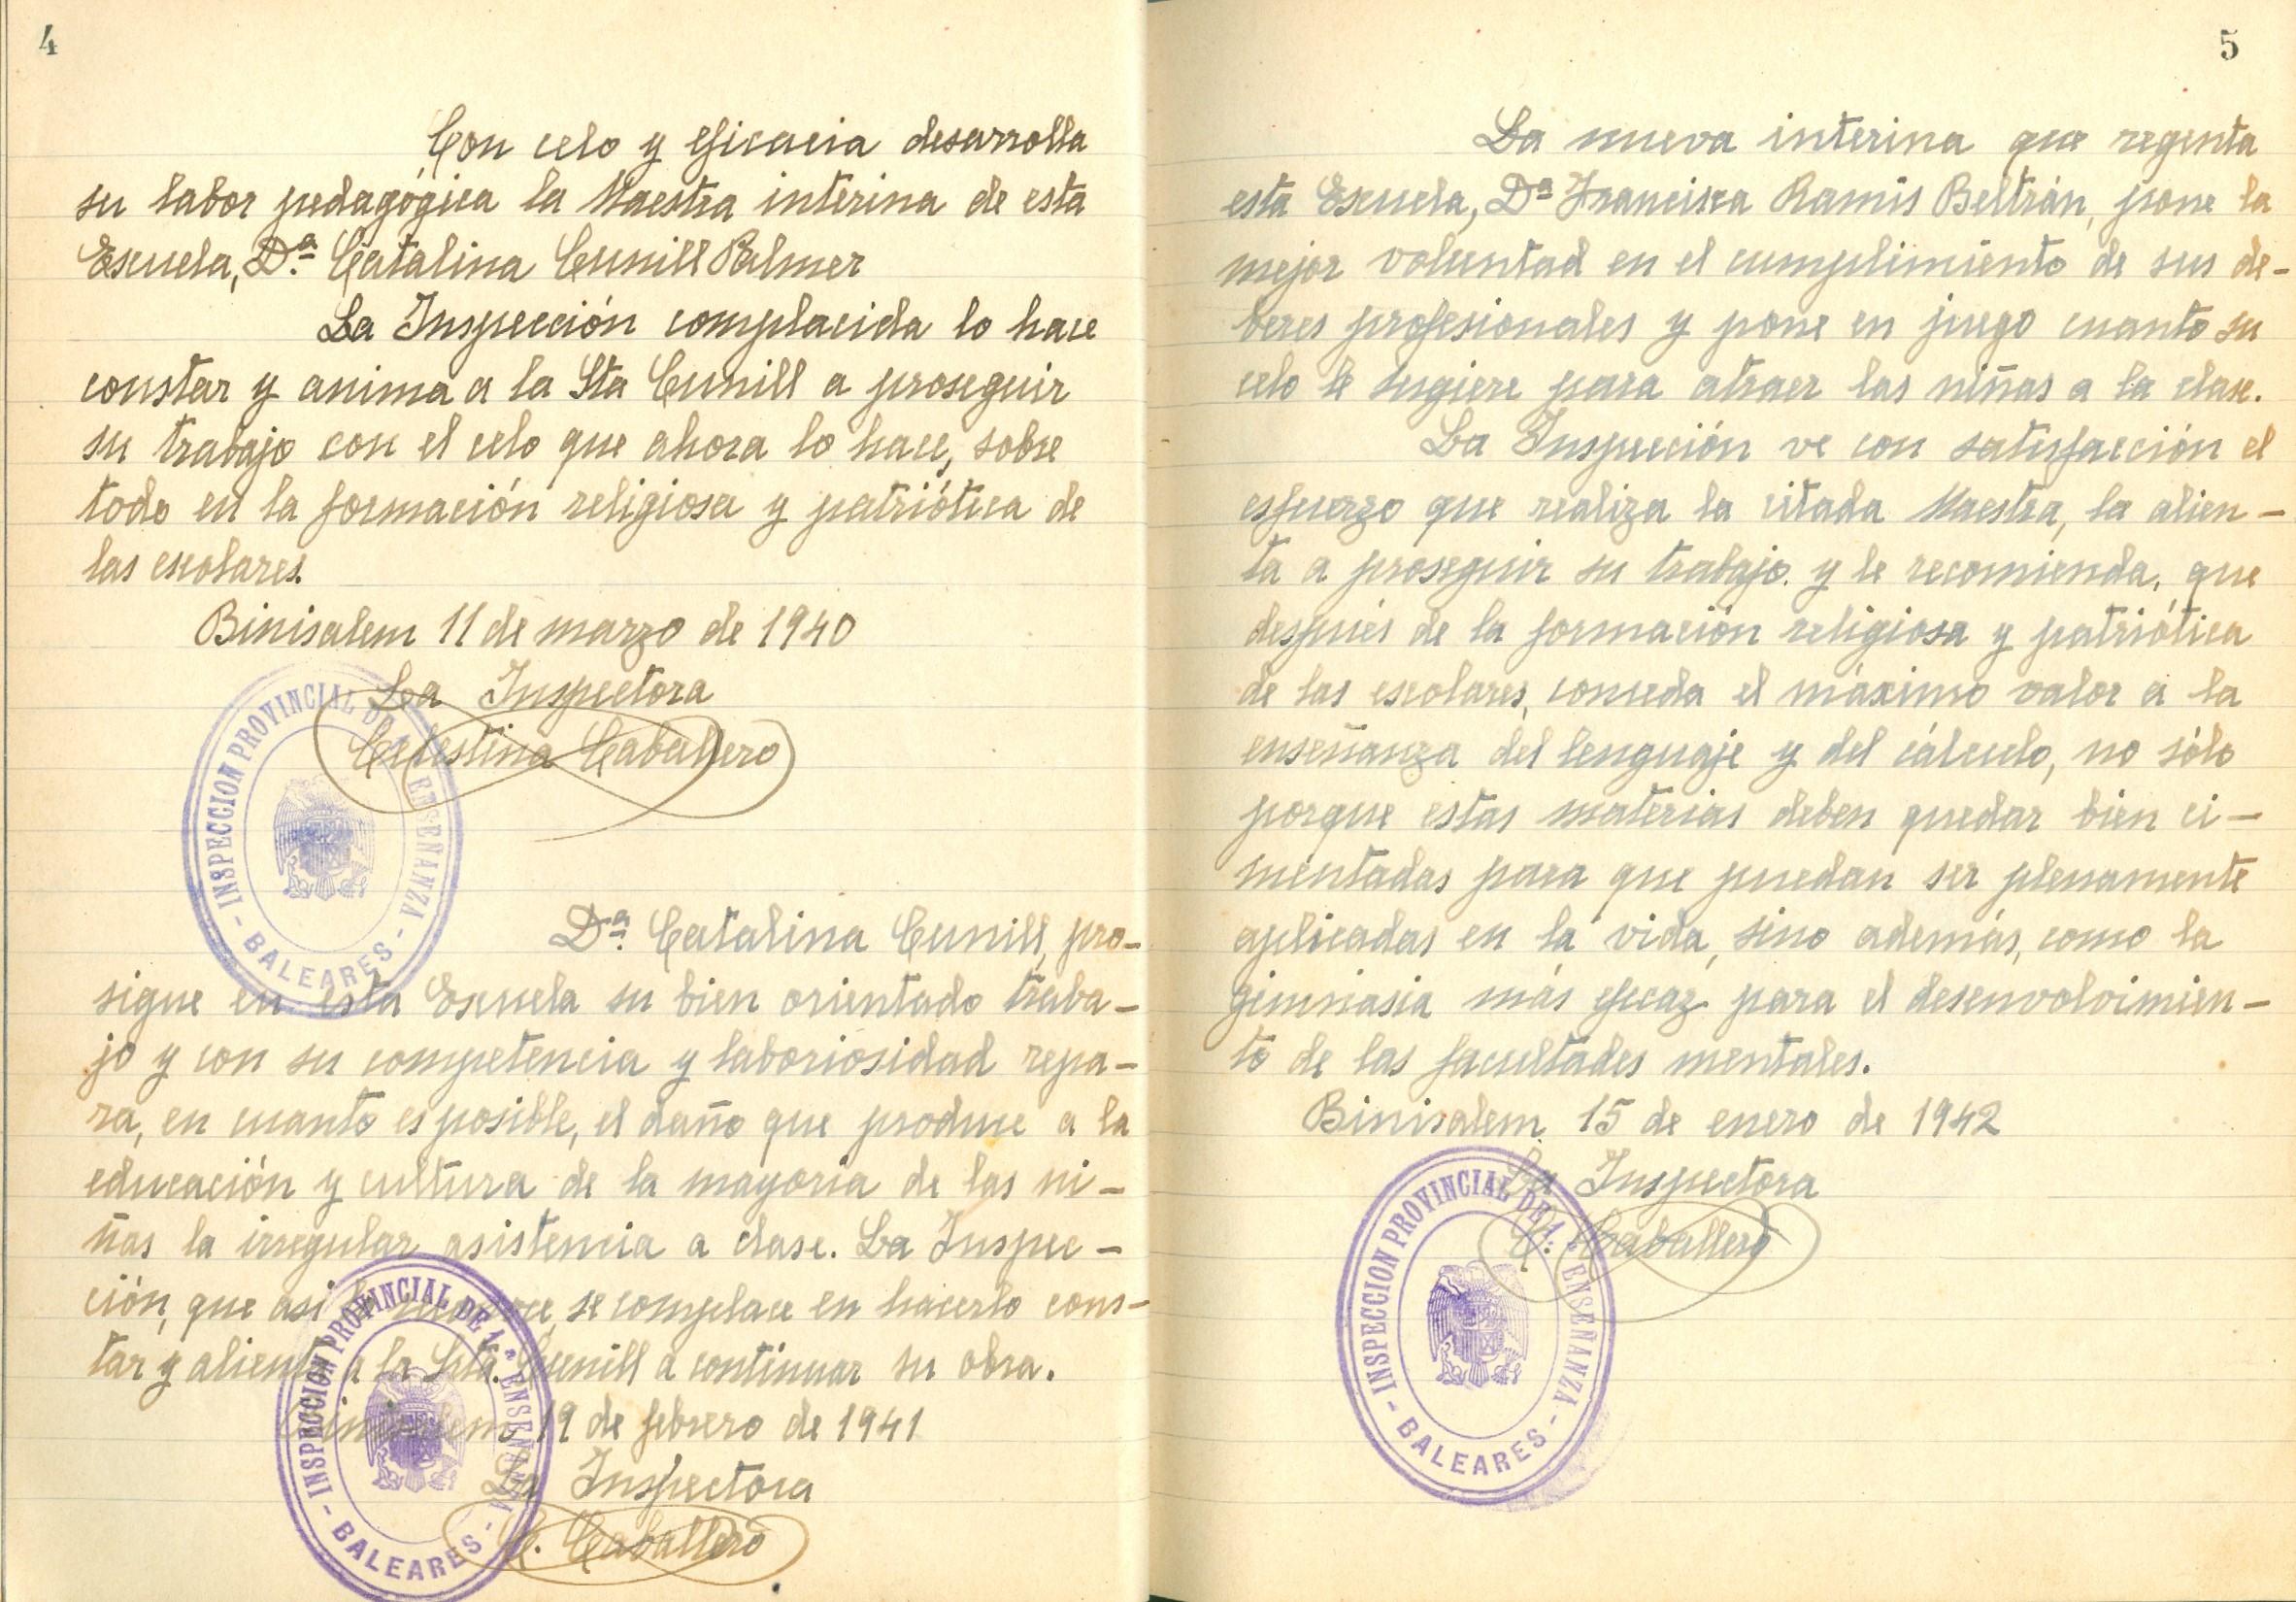 4
Con celo y eficacia desarrolla
su labor pedagógica la Maestra interina de esta
Escuela, Dª Catalina Cunill Palmer
La Inspección complacida lo hace
constar y anima a la Sta Cunill a proseguir
su trabajo con el celo que ahora lo hace, sobre
todo en la formación religiosa y patriótica de
las escolares.
Binisalem 11 de marzo de 1940
La Inspectora
Celestina Caballero
INSPECCION PROVINCIAL DE 1.ª ENSEÑANZA
- BALEARES -
Dª Catalina Cunill, pro-
sigue en esta Escuela su bien orientado traba-
jo y con su competencia y laboriosidad repa-
ra, en cuanto es posible, el daño que produce a la
educación y cultura de la mayoria de las ni-
ñas la irregular asistencia a clase. La Inspec-
ción, que asi lo reconoce, se complace en hacerlo cons-
tar y alienta a la Srta. Cunill a continuar su obra.
Binisalem 19 de febrero de 1941
La Inspectora
C. Caballero
INSPECCION PROVINCIAL DE 1.ª ENSEÑANZA
- BALEARES -
5
La nueva interina que regenta
esta Escuela, Dª Francisca Ramis Beltrán, pone la
mejor voluntad en el cumplimiento de sus de-
beres profesionales y pone en juego cuanto su
celo le sugiere para atraer las niñas a la clase.
La Inspección ve con satisfacción el
esfuerzo que realiza la citada Maestra, la alien-
ta a proseguir su trabajo y le recomienda, que
después de la formación religiosa y patriótica
de las escolares, conceda el máximo valor a la
enseñanza del lenguaje y del cálculo, no sólo
porque estas materias deben quedar bien ci-
mentadas para que puedan ser plenamente
aplicadas en la vida, sino además, como la
gimnasia más eficaz para el desenvolvimien-
to de las facultades mentales.
Binisalem 15 de enero de 1942
La Inspectora
C. Caballero
INSPECCION PROVINCIAL DE 1.ª ENSEÑANZA
- BALEARES -